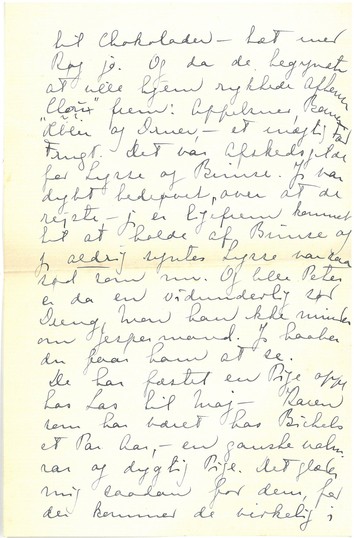 til Chokolader — tæt med
Røg jo. Og da de begyndte
at ville hjem rykkede Aftenens
"Clou" frem: Appelsiner, Bananer
Æbler og Druer, — et mægtigt Fad
Frugt. Det var Afskedsgilde
for Lysse og Bimse. Jeg var
dybt bedrøvet over at de
rejste — jeg er ligefrem kommet
til at holde af Bimse og
jeg aldrig syntes Lysse var saa
sød som nu. Og lille Peter
er da en vidunderlig sød
Dreng, man han kke minder
om Jespermand. Jeg haaber
du faar ham at se.
De har fæstet en Pige oppe
hos Las til Maj — Karen
som har været hos Bichels
et Par Aar, — en ganske valn.
rar og dygtig Pige. Det glæder
mig saadan for dem, for
der kommer de virkelig i